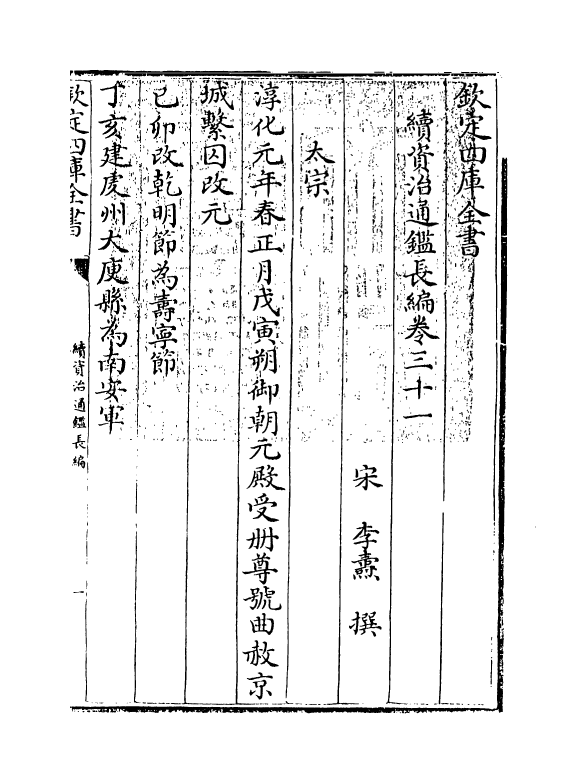 欽定四庫全書
續資治通鑑長編卷三十一
宋 李燾 撰
太宗
淳化元年春正月戊寅朔御朝元殿受冊尊號曲赦京
城繫囚改元
己卯改乾明節為壽寧節
丁亥建虔州大庾縣為南安軍
欽定四庫全書
續資治通鑑長編
一